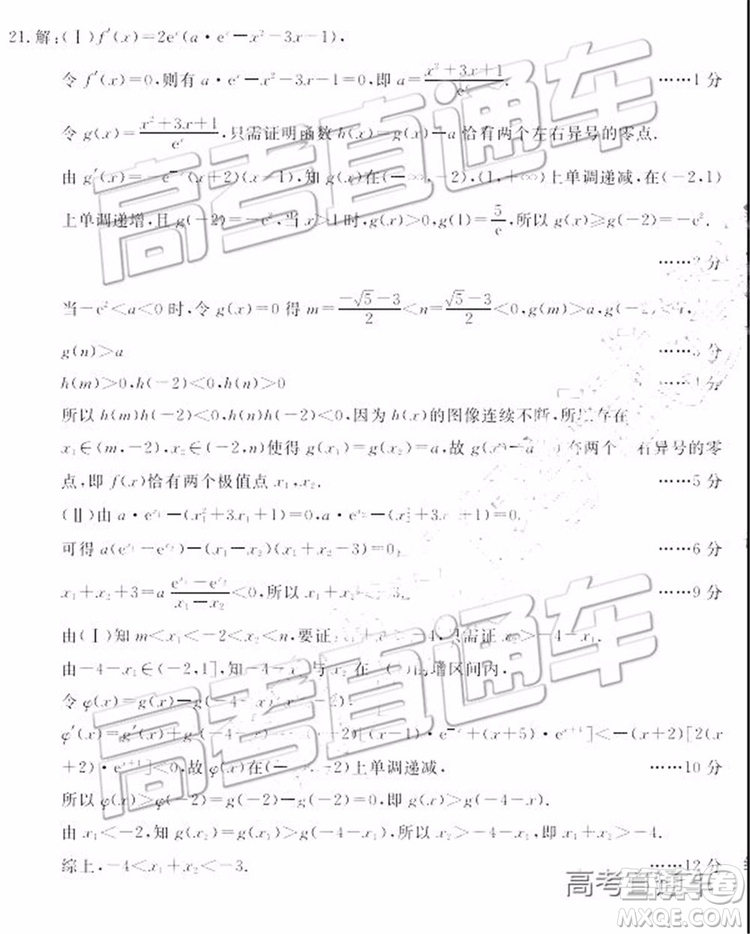 21.解:(Ⅰ)f′(x)=2eˣ(a·eˣ-x²-3x-1),
令 f′(x)=0,则有 a·eˣ-x²-3x-1=0,即 a=(x²+3x+1)/eˣ. ……1 分
令 g(x)=(x²+3x+1)/eˣ,只需证明函数 h(x)=g(x)-a 恰有两个左右异号的零点.
由 g′(x)=-e⁻ˣ(x+2)(x-1),知 g(x)在(-∞,-2),(1,+∞)上单调递减,在(-2,1)
上单调递增,且 g(-2)=-e²,当 x>1时,g(x)>0,g(1)=5/e,所以 g(x)≥g(-2)=-e².
分
当-e²<a<0 时,令 g(x)=0 得 m=(-√5-3)/2<n=(√5-3)/2<0,g(m)>a,g(-2)<a,
g(n)>a ……3 分
h(m)>0,h(-2)<0,h(n)>0 分
所以 h(m)h(-2)<0,h(n)h(-2)<0,因为 h(x)的图像连续不断,所以存在
x₁∈(m,-2),x₂∈(-2,n)使得 g(x₁)=g(x₂)=a,故 g(x)-a 有两个 右异号的零
点,即 f(x)恰有两个极值点 x₁,x₂. ……5 分
(Ⅱ)由 a·e^x₁-(x₁²+3x₁+1)=0,a·e^x₂-(x₂²+3x₂+1)=0,
可得 a(e^x₁-e^x₂)-(x₁-x₂)(x₁+x₂+3)=0, ……6 分
x₁+x₂+3=a (e^x₁-e^x₂)/(x₁-x₂)<0,所以 x₁+x₂<-3. ……9 分
由(Ⅰ)知 m<x₁<-2<x₂<n<0,要证 x₁+x₂>-4,只需证 x₂>-4-x₁.
由-4-x₁∈(-2,1],知-4-x₁与 x₂在 增区间内.
令 φ(x)=g(x)-g(-4-x)(x<-2).
φ′(x)=g′(x)+g′(-4-x)
+2)·]<0,故 φ(x)在(-∞,-2)上单调递减, ……10 分
所以 φ(x)>φ(-2)=g(-2)-g(-2)=0,即 g(x)>g(-4-x).
由 x₁<-2,知 g(x₁)>g(-4-x₁),所以 x₂>-4-x₁,即 x₁+x₂>-4.
综上,-4<x₁+x₂<-3. ……12 分
高考直通车
高考直通车
高考直通车
MXQE.COM